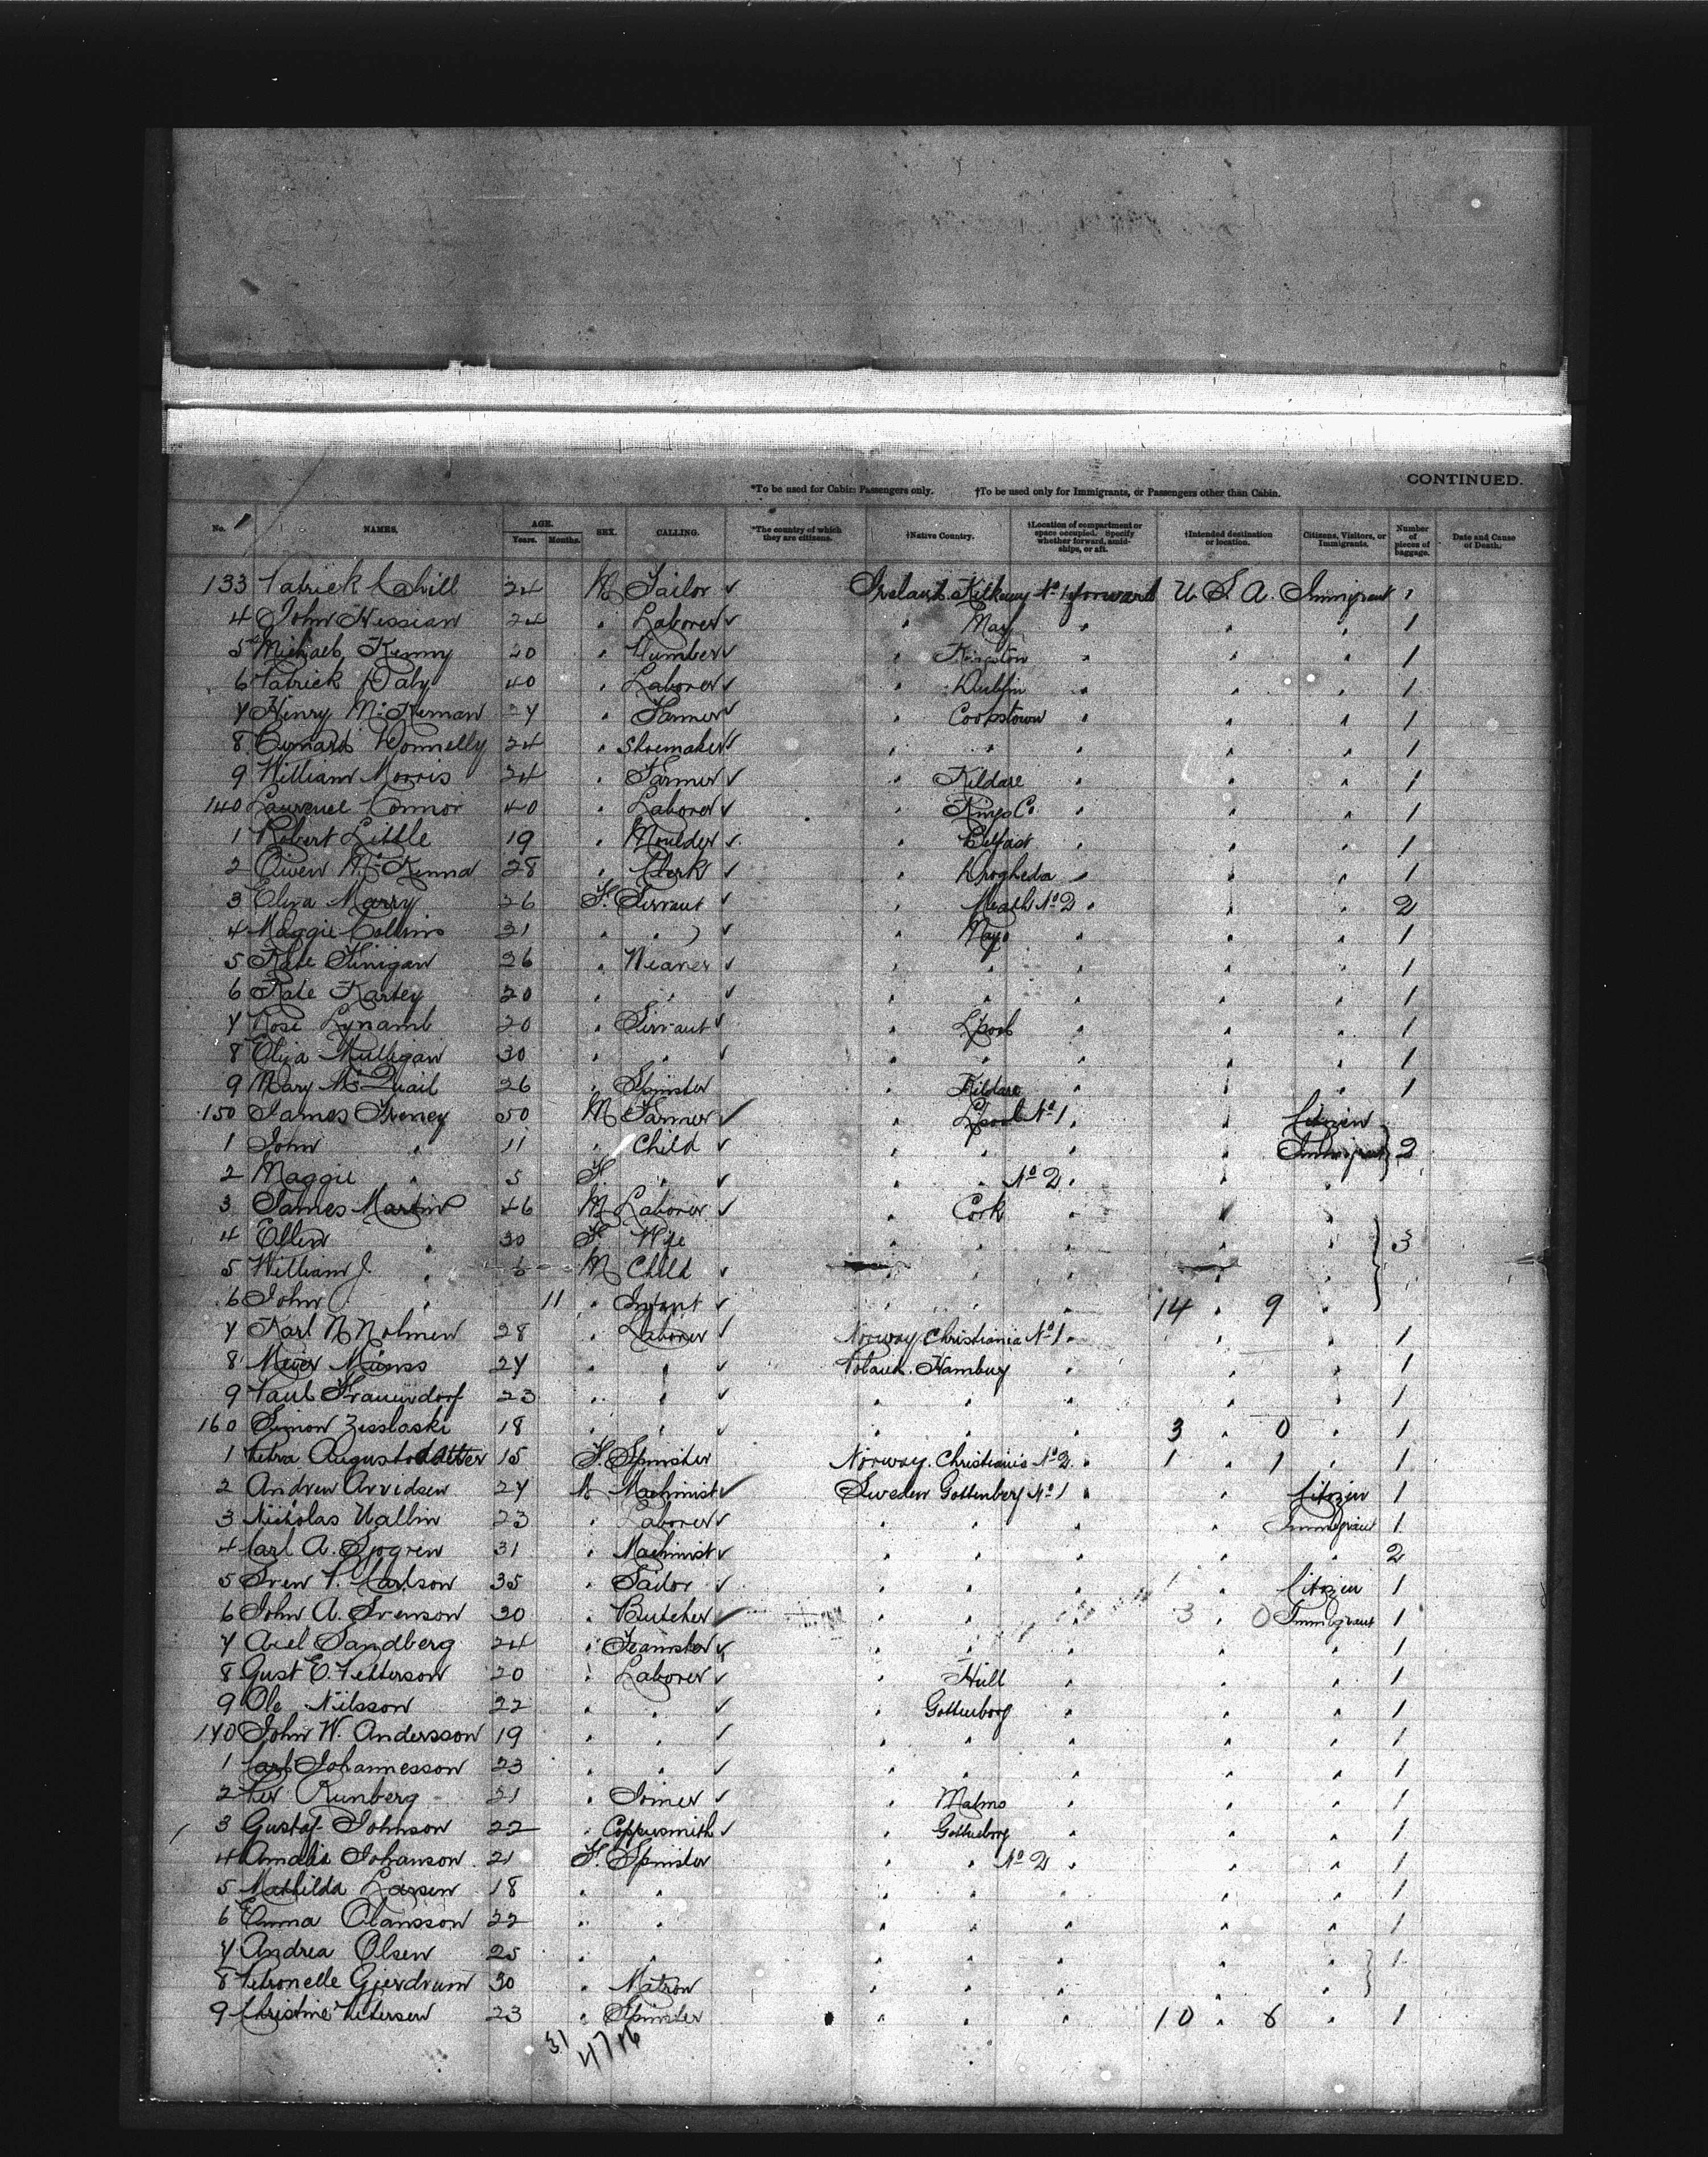 CONTINUED.
*To be used for Cabin Passengers only. †To be used only for Immigrants, or Passengers other than Cabin.
No. NAMES. AGE. Years. Months. SEX. CALLING. *The country of which they are citizens. †Native Country. †Location of compartment or space occupied. Specify whether forward, amidships, or aft. †Intended destination or location. Citizens, Visitors, or Immigrants. Number of pieces of baggage. Date and Cause of Death.
133 Patrick Cahill 24 M Tailor ✓ Ireland. Kilkenny No 1 forward U. S. A. Immigrant 1
4 John Hessian 24 " Laborer ✓ " May " " " 1
5 Michael Kenny 20 " Plumber ✓ " Kingston " " " 1
6 Patrick Daly 40 " Laborer ✓ " Dublin " " " 1
7 Henry McKernan 27 " Farmer ✓ " Cookstown " " " 1
8 Bernard Donnelly 24 " Shoemaker ✓ " " " " " 1
9 William Morris 24 " Farmer ✓ " Kildare " " " 1
140 Laurence Connor 40 " Laborer ✓ " Kings Co. " " " 1
1 Robert Little 19 " Moulder ✓ " Belfast " " " 1
2 Owen McKenna 28 " Clerk ✓ " Drogheda " " " 1
3 Eliza Marry 26 F. Servant ✓ " Meath No 2 " " " 2
4 Maggie Collins 21 " " ✓ " Mayo " " " 1
5 Kate Finigan 26 " Weaver ✓ " " " " " 1
6 Kate Karley 20 " " ✓ " " " " " 1
7 Rose Lynamb 20 " Servant ✓ " Lpool " " " 1
8 Eliza Mulligan 30 " " ✓ " " " " " 1
9 Mary McQuail 26 " Spinster " Kildare " " " 1
150 James Freney 50 M Farmer ✓ " Lpool No 1 " " Citizen
1 John " 11 " Child ✓ " " " " Immigrant } 2
2 Maggie " 5 F " ✓ " " No 2 " " "
3 James Martin 46 M Laborer ✓ " Cork " ✓ "
4 Ellen " 30 F Wife " " " " " } 3
5 William J. " 6 M Child ✓ " " " "
6 John " 11 " Infant ✓ " " " 14 " 9 "
7 Karl N Nolmen 28 " Laborer ✓ Norway. Christiania No 1 " " " 1
8 Meier 27 " " ✓ Poland. Hamburg " " " 1
9 Paul Frauendorf 23 " " ✓ " " " " " 1
160 Simon Zesslaski 18 " " ✓ " " " 3 " 0 " 1
1 Petra Augustodatter 15 F. Spinster Norway. Christiania No 2 " 1 " 1 " 1
2 Andrew Arvidsen 27 M Machinist ✓ Sweden Gottenberg No 1 " " Citizen 1
3 Nicholas Wallin 23 " Laborer ✓ " " " " Immigrant 1
4 Carl A. Sjogren 31 " Machinist ✓ " " " " " 2
5 Sven P. Carlson 35 " Sailor ✓ " " " 1 " Citizen 1
6 John A. Svenson 20 " Butcher ✓ " " " 3 " 0 Immigrant 1
7 Axel Sandberg 24 " Teamster ✓ " " " " " 1
8 Gust E. Petterson 20 " Laborer ✓ " Hull " " " 1
9 Ole Nilsson 22 " " ✓ " Gottenborg " " " 1
170 John W. Andersson 19 " " ✓ " " " " " 1
1 Carl Johannesson 23 " " ✓ " " " " " 1
2 Per Runberg 21 " Joiner ✓ " Malmo " " " 1
3 Gustaf Johnson 22 " Coppersmith ✓ " Gottenborg " " " 1
4 Amalie Johanson 21 F. Spinster " " No 2 " " " 1
5 Mathilda Larsen 18 " " " " " " " 1
6 Emma Olansson 22 " " " " " " " 1
7 Andrea Olsen 25 " " " " " " " } 1
8 Petronelle Gjerdrum 30 " Matron " " " " "
9 Christine Petersen 23 " Spinster " " " 10 " 8 " 1
31
4716